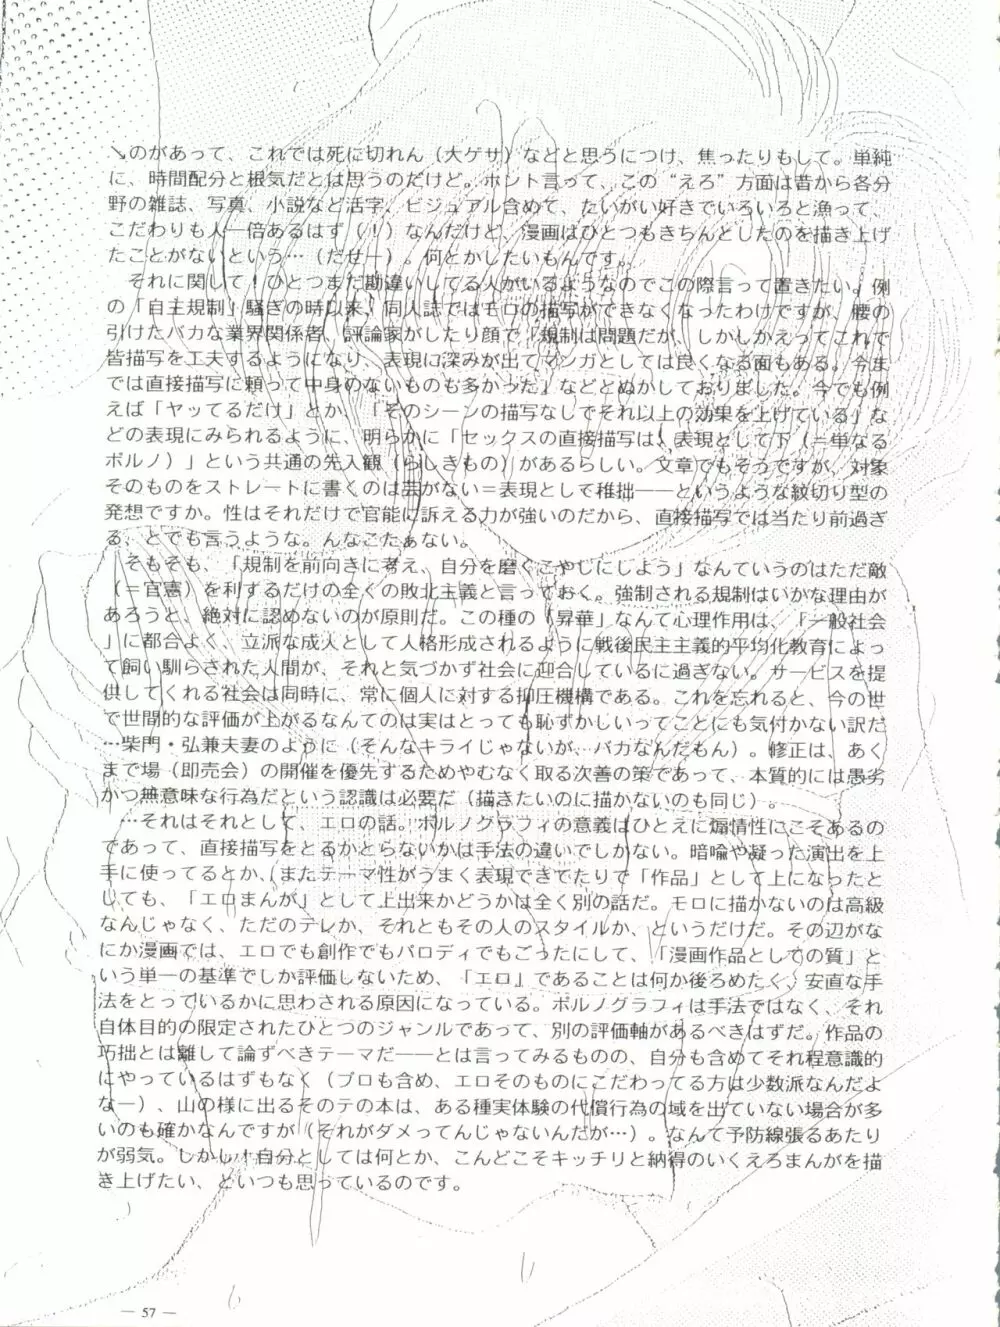 ↘のがあって、これでは死に切れん（大ゲサ）などと思うにつけ、焦ったりもして。単純
に、時間配分と根気だとは思うのだけど。ホント言って、この“えろ”方面は昔から各分
野の雑誌、写真、小説など活字、ビジュアル含めて、たいがい好きでいろいろと漁って、
こだわりも人一倍あるはず（！）なんだけど、漫画はひとつもきちんとしたのを描き上げ
たことがないという…（だせー）。何とかしたいもんです。
それに関して！ひとつまだ勘違いしてる人がいるようなのでこの際言って置きたい。例
の「自主規制」騒ぎの時以来、同人誌ではモロの描写ができなくなったわけですが、腰の
引けたバカな業界関係者、評論家がしたり顔で「規制は問題だが、しかしかえってこれで
皆描写を工夫するようになり、表現に深みが出てマンガとしては良くなる面もある。今ま
では直接描写に頼って中身のないものも多かった」などとぬかしておりました。今でも例
えば「ヤッてるだけ」とか、「そのシーンの描写なしでそれ以上の効果を上げている」な
どの表現にみられるように、明らかに「セックスの直接描写は、表現として下（＝単なる
ポルノ）」という共通の先入観（らしきもの）があるらしい。文章でもそうですが、対象
そのものをストレートに書くのは芸がない＝表現として稚拙――というような紋切り型の
発想ですか。性はそれだけで官能に訴える力が強いのだから、直接描写では当たり前過ぎ
る、とでも言うような。んなこたぁない。
そもそも、「規制を前向きに考え、自分を磨くこやしにしよう」なんていうのはただ敵
（＝官憲）を利するだけの全くの敗北主義と言っておく。強制される規制はいかな理由が
あろうと、絶対に認めないのが原則だ。この種の「昇華」なんて心理作用は、「一般社会
」に都合よく、立派な成人として人格形成されるように戦後民主主義的平均化教育によっ
て飼い馴らされた人間が、それと気づかず社会に迎合しているに過ぎない。サービスを提
供してくれる社会は同時に、常に個人に対する抑圧機構である。これを忘れると、今の世
で世間的な評価が上がるなんてのは実はとっても恥ずかしいってことにも気付かない訳だ
…柴門・弘兼夫妻のように（そんなキライじゃないが、バカなんだもん）。修正は、あく
まで場（即売会）の開催を優先するためやむなく取る次善の策であって、本質的には愚劣
かつ無意味な行為だという認識は必要だ（描きたいのに描かないのも同じ）。
…それはそれとして、エロの話。ポルノグラフィの意義はひとえに煽情性にこそあるの
であって、直接描写をとるかとらないかは手法の違いでしかない。暗喩や凝った演出を上
手に使ってるとか、またテーマ性がうまく表現できてたりで「作品」として上になったと
しても、「エロまんが」として上出来かどうかは全く別の話だ。モロに描かないのは高級
なんじゃなく、ただのテレか、それともその人のスタイルか、というだけだ。その辺がな
にか漫画では、エロでも創作でもパロディでもごったにして、「漫画作品としての質」と
いう単一の基準でしか評価しないため、「エロ」であることは何か後ろめたく、安直な手
法をとっているかに思わされる原因になっている。ポルノグラフィは手法ではなく、それ
自体目的の限定されたひとつのジャンルであって、別の評価軸があるべきはずだ。作品の
巧拙とは離して論ずべきテーマだ――とは言ってみるものの、自分も含めてそれ程意識的
にやっているはずもなく（プロも含め、エロそのものにこだわってる方は少数派なんだよ
なー）、山の様に出るそのテの本は、ある種実体験の代償行為の域を出ていない場合が多
いのも確かなんですが（それがダメってんじゃないんだが…）。なんて予防線張るあたり
が弱気。しかし！自分としては何とか、こんどこそキッチリと納得のいくえろまんがを描
き上げたい、といつも思っているのです。
― 57 ―